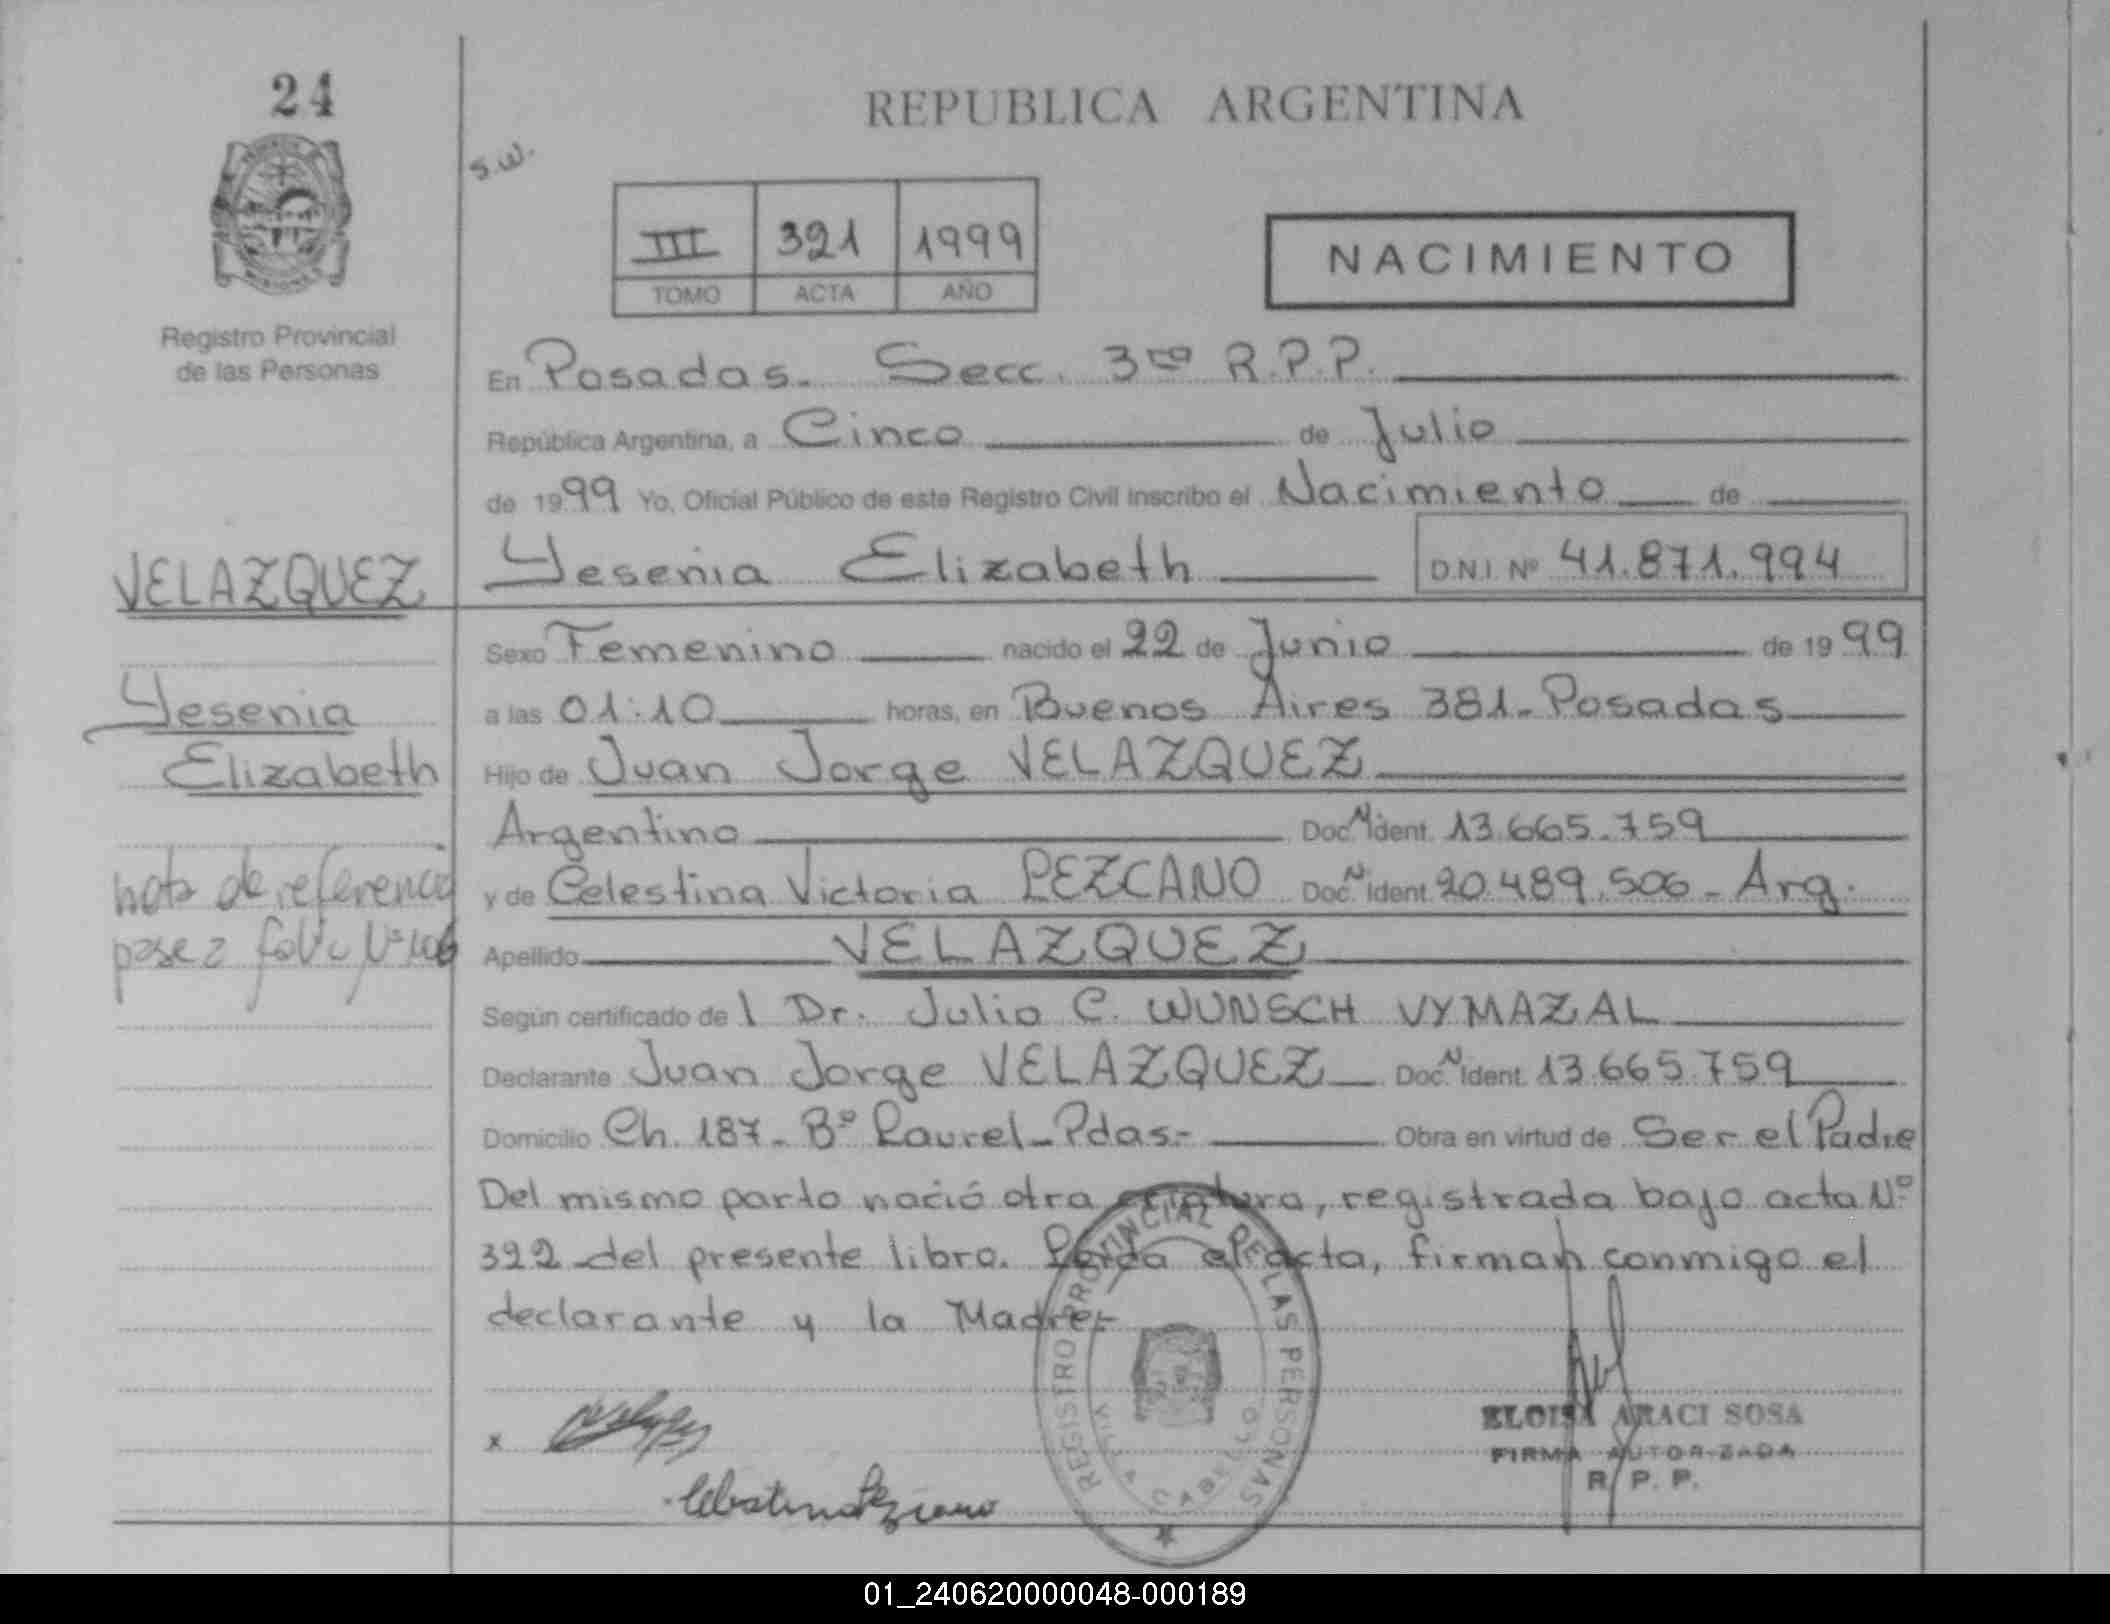 24
REPUBLICA ARGENTINA
S.W.
III 321 1999
TOMO ACTA AÑO
NACIMIENTO
Registro Provincial
de las Personas
En Posadas. Secc. 3ra R.P.P.
República Argentina, a Cinco de Julio
de 1999 Yo, Oficial Público de este Registro Civil inscribo el Nacimiento de
VELAZQUEZ
Yesenia Elizabeth D.N.I. Nº 41.871.994
Sexo Femenino nacido el 22 de Junio de 1999
Yesenia
a las 01:10 horas, en Buenos Aires 381-Posadas
Elizabeth
Hijo de Juan Jorge VELAZQUEZ
Argentino Doc. N Ident. 13.665.759
nota de referencia
y de Celestina Victoria PEZCANO Doc. N Ident. 20.489.506- Arg.
pase a folio Nº 106
Apellido VELAZQUEZ
Según certificado de l Dr. Julio C. WUNSCH VYMAZAL
Declarante Juan Jorge VELAZQUEZ Doc. N Ident. 13.665.759
Domicilio Ch. 187- Bº Laurel-Pdas.- Obra en virtud de Ser el Padre
Del mismo parto nació otra criatura, registrada bajo acta Nº
322 del presente libro. Leída el acta, firman conmigo el
declarante y la Madre.-
REGISTRO PROVINCIAL DE LAS PERSONAS
VILLA CABELLO
x
Celestina Pezcano
ELOISA ARACI SOSA
FIRMA AUTORIZADA
R. P. P.
01_240620000048-000189